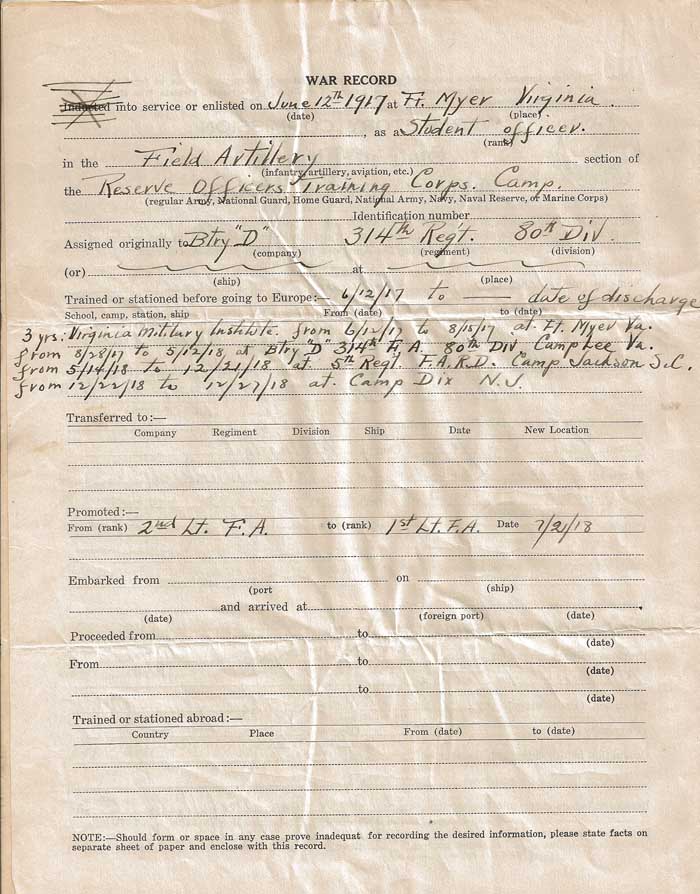 WAR RECORD
Inducted into service or enlisted on June 12th 1917 at Ft. Myer Virginia.
(date) (place)
, as a Student officer.
(rank)
in the Field Artillery section of
(infantry, artillery, aviation, etc.)
the Reserve Officers Training Corps. Camp.
(regular Army, National Guard, Home Guard, National Army, Navy, Naval Reserve, or Marine Corps)
Identification number
Assigned originally to Btry "D" 314th Reg't. 80th Div.
(company) (regiment) (division)
(or) at
(ship) (place)
Trained or stationed before going to Europe:— 6/12/17 to — date of discharge
School, camp, station, ship From (date) to (date)
3 yrs: Virginia Military Institute. from 6/12/17 to 8/15/17 at Ft. Myer Va.
from 8/28/17 to 5/12/18 at Btry "D" 314th F.A. 80th Div Camp Lee Va.
from 5/14/18 to 12/21/18 at 5th Regt. F.A.R.D. Camp Jackson S.C.
from 12/22/18 to 12/27/18 at Camp Dix N.J.
Transferred to:—
Company Regiment Division Ship Date New Location
Promoted:—
From (rank) 2nd Lt. F.A. to (rank) 1st Lt. F.A. Date 7/21/18
Embarked from on
(port (ship)
and arrived at
(date) (foreign port) (date)
Proceeded from to
(date)
From to
(date)
to
(date)
Trained or stationed abroad:—
Country Place From (date) to (date)
NOTE:—Should form or space in any case prove inadequat for recording the desired information, please state facts on
separate sheet of paper and enclose with this record.